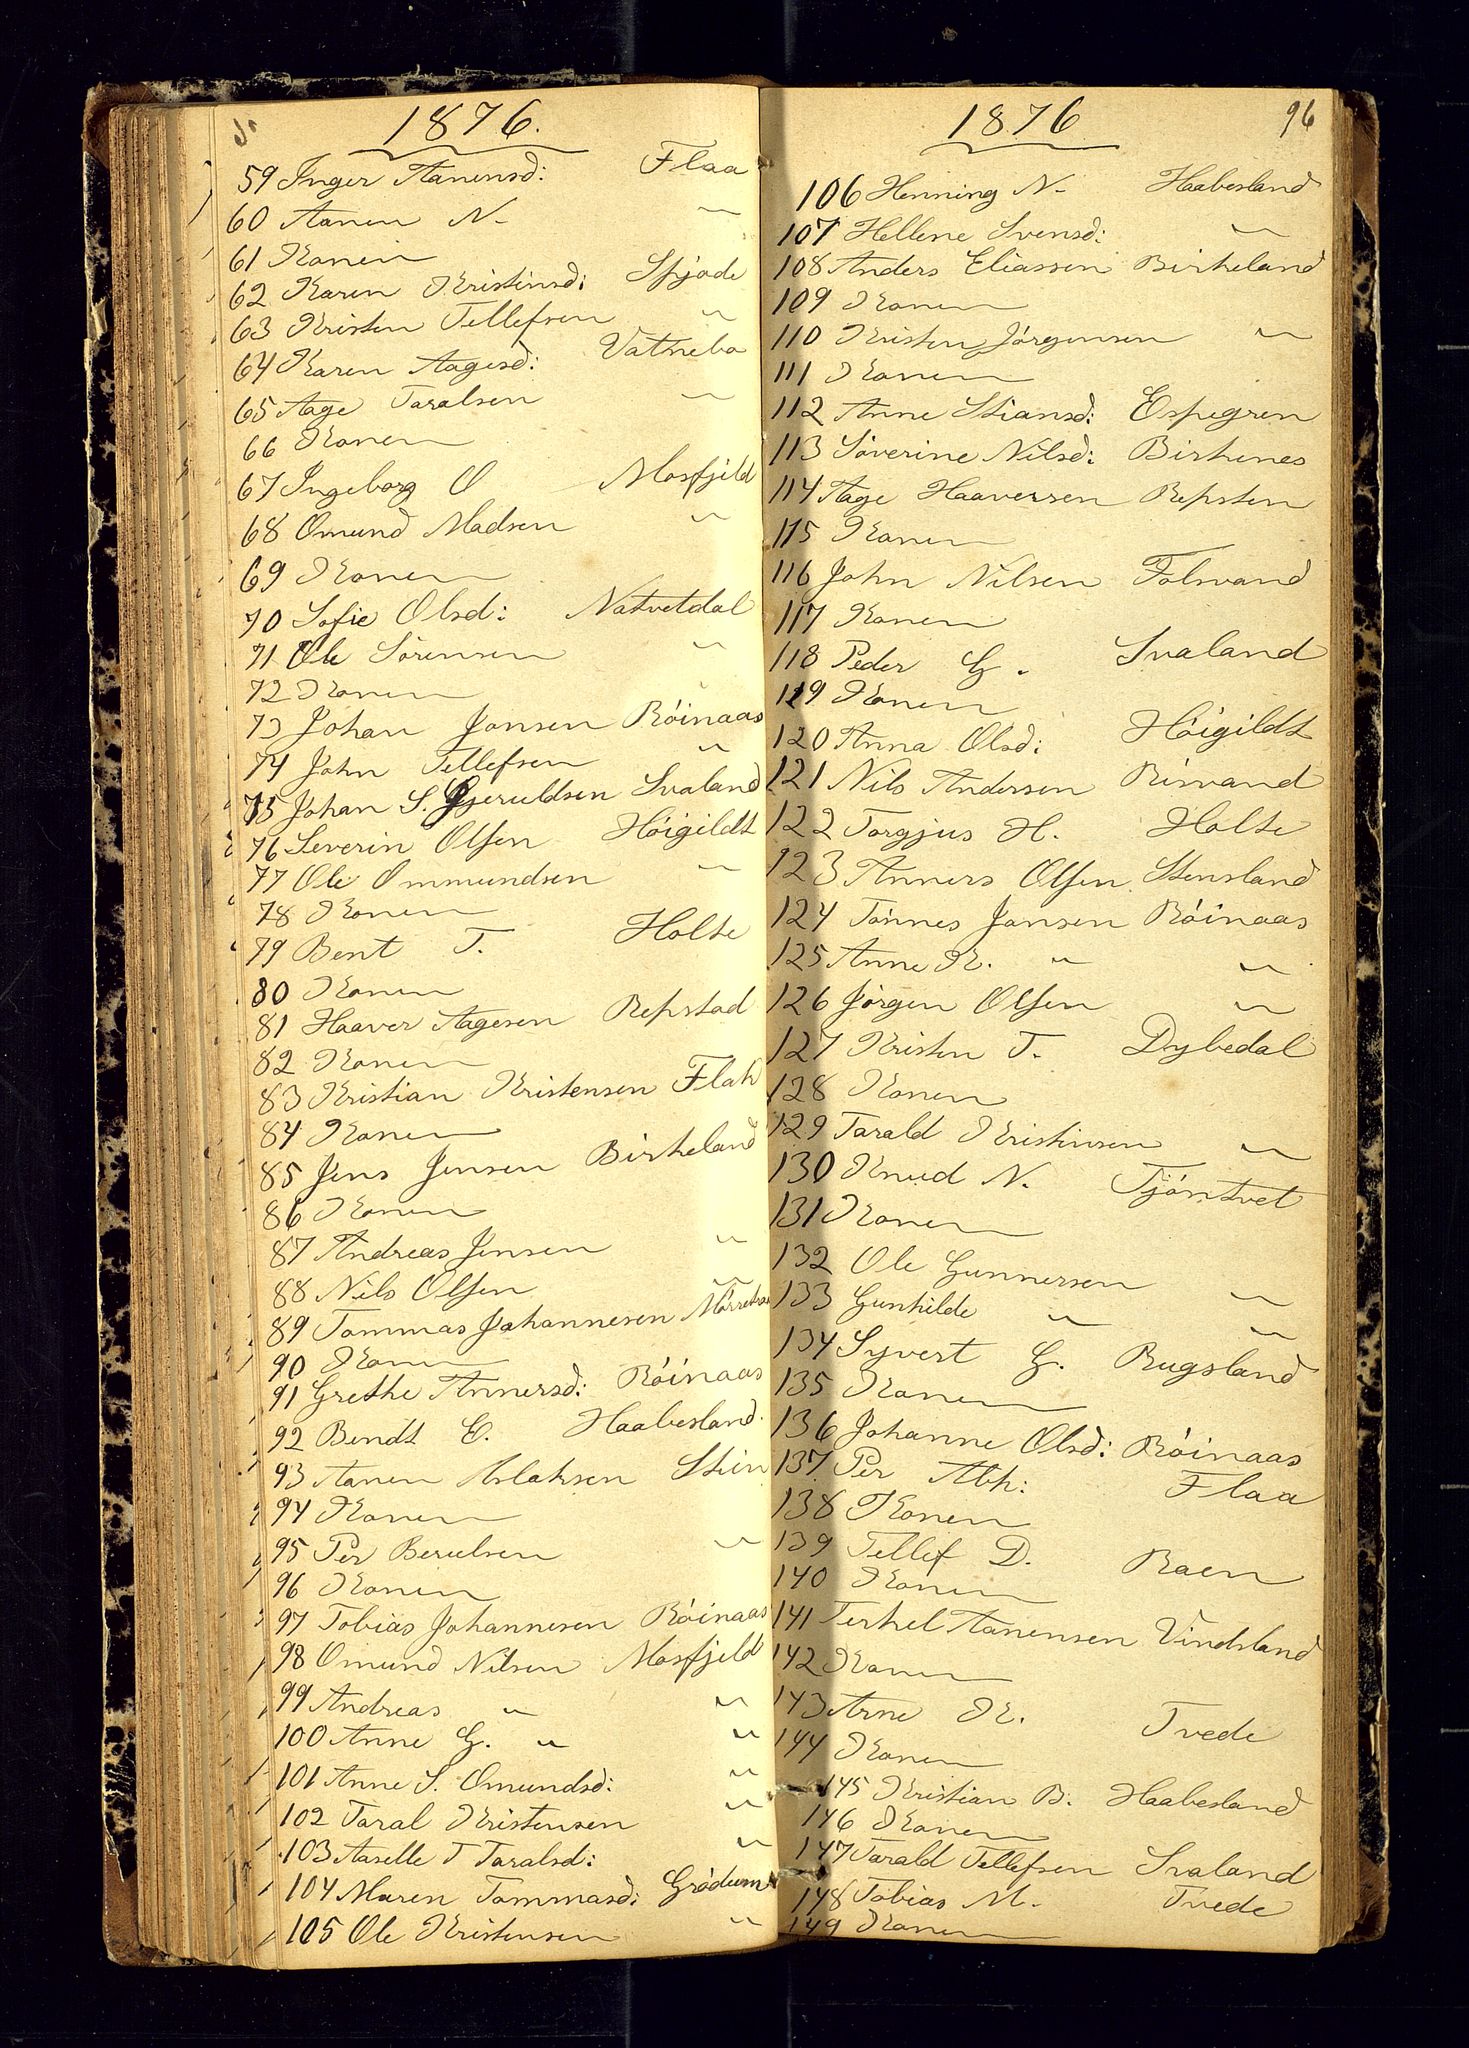 1876.
59 Inger Aanensd: Flaa
60 Aanen N. "
61 Konen
62 Karen Kristinsd: Spjode
63 Kristen Tellefsen "
64 Karen Aagesd: Vatnebo
65 Aage Taralsen "
66 Konen
67 Ingeborg O Mosfjeld
68 Omund Madsen "
69 Konen
70 Sofie Olsd: Natvetdal
71 Ole Sørensen "
72 Konen "
73 Johan Jonsen Røinaas
74 John Tellefsen "
75 Johan S. Gjeruldsen Svaland
76 Severin Olsen Høigildt
77 Ole Ommundsen "
78 Konen
79 Bent T. Holte
80 Konen
81 Haaver Aagesen Repstad
82 Konen
83 Kristian Kristensen Flak
84 Konen
85 Jens Jensen Birkeland
86 Konen
87 Andreas Jensen "
88 Nils Olsen "
89 Tommas Johannesen
90 Konen
91 Grethe Annersd: Røinaas
92 Bendt E. Haabesland.
93 Aanen Aslaksen Stien
94 Konen
95 Per Berulsen "
96 Konen
97 Tobias Johannesen Røinaas
98 Omund Nilsen Mosfjeld
99 Andreas " "
100 Anne G. " "
101 Anne S. Omundsd: "
102 Taral Kristensen "
103 Aaselle T Taralsd: "
104 Maren Tommasd: Grødum
105 Ole Kristensen "
1876 96
106 Henning N. Haabesland
107 Hellene Svensd: "
108 Anders Eliassen Birkeland
109 Konen
110 Kristen Jørgensen "
111 Konen
112 Anne Stiansd: Espegren
113 Søverine Nilsd: Birkenes
114 Aage Haaversen Repsten
115 Konen
116 John Nilsen Tolvand
117 Konen
118 Peder G. Svaland
119 Konen
120 Anna Olsd: Høigildt
121 Nils Andersen Risvand
122 Torgjus H. Holte
123 Anners Olsen Stensland
124 Tønnes Jonsen Røinaas
125 Anne K. " "
126 Jørgen Olsen "
127 Kristen T. Dybedal
128 Konen
129 Tarald Kristensen "
130 Knud N. Tjøntvet
131 Konen
132 Ole Gunnersen "
133 Gunhilde " "
134 Syvert G. Rugsland
135 Konen
136 Johanne Olsd: Røinaas
137 Per Abh: Flaa
138 Konen
139 Tellef D. Raen
140 Konen
141 Terkel Aanensen Vindsland
142 Konen
143 Arne K. Tvede
144 Konen
145 Kristian B. Haabesland
146 Konen
147 Tarald Tellefsen Svaland
148 Tobias M. Tvede
149 Konen